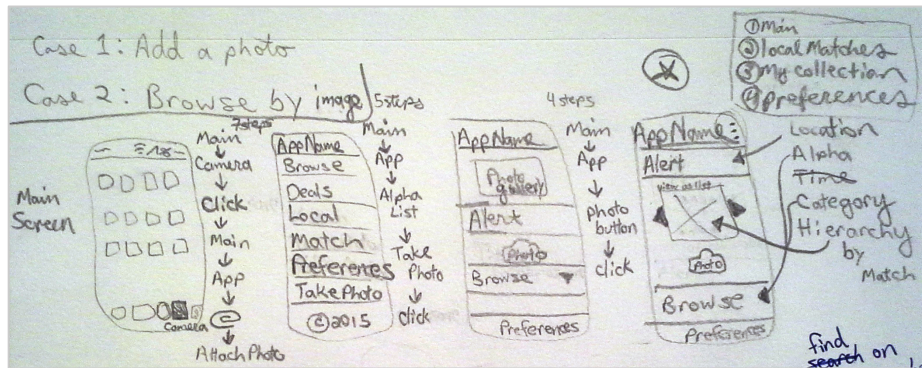 Case 1: Add a photo
Case 2: Browse by image
① Main
② local Matches
③ My collection
④ preferences
Main Screen
Camera
7 steps
Main
Camera
Click
Main
App
Attach Photo
AppName
Browse
Deals
Local
Match
Preferences
Take Photo
©2015
5 steps
Main
App
Alpha List
Take Photo
click
AppName
Photo gallery
Alert
Photo
Browse
Preferences
4 steps
Main
App
photo button
click
AppName
Alert
view as list
Photo
Browse
Preferences
Location
Alpha
Time
Category
Hierarchy
by
Match
find
search on